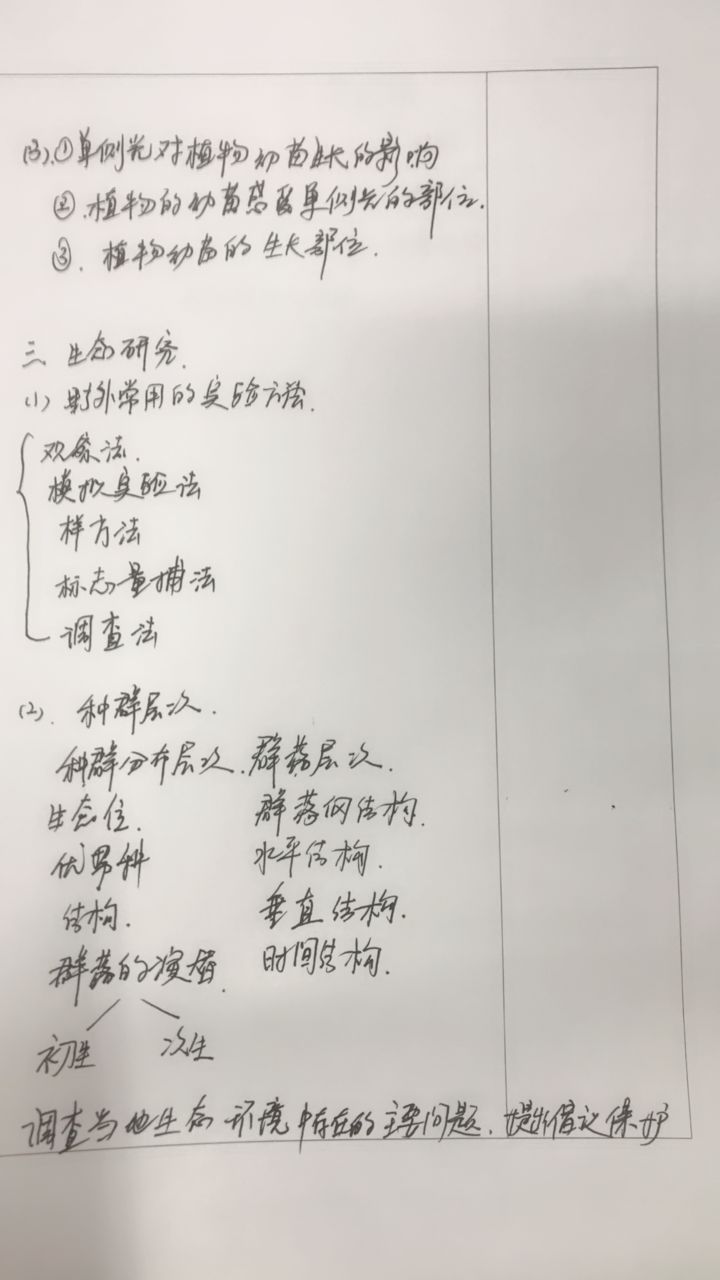 (3).①单侧光对植物幼苗生长的影响
②.植物的幼苗感受单侧光的部位.
③.植物幼苗的生长部位.
三 生态研究.
(1) 野外常用的实验方法.
观察法.
模拟实验法
样方法
标志重捕法
调查法
(2). 种群层次.
种群分布层次.群落层次.
生态位. 群落的结构.
优势种 水平结构.
结构. 垂直结构.
群落的演替. 时间结构.
初生 次生
调查当地生态环境中存在的主要问题.提出倡议保护